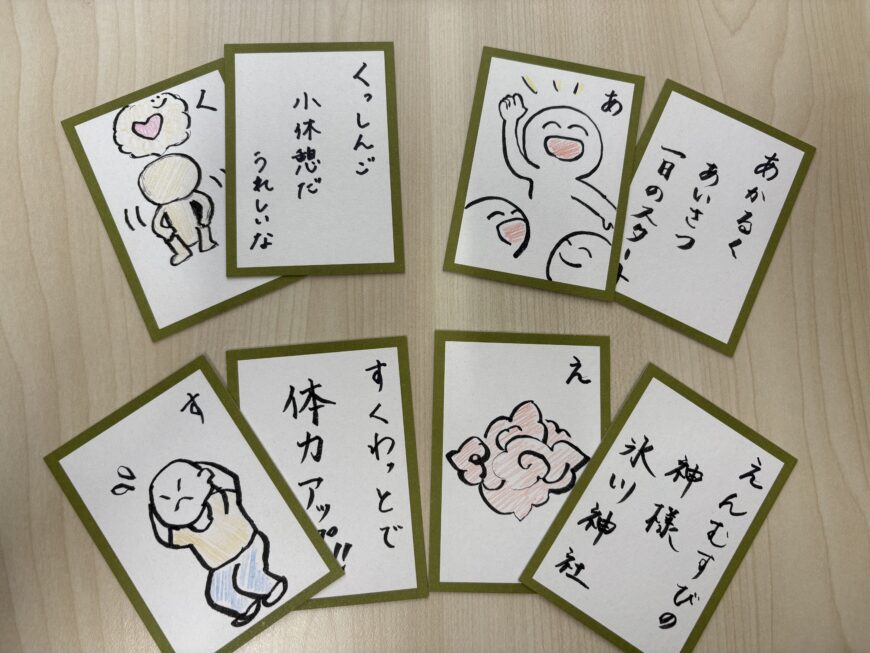 く
くっしんご
小休憩だ
うれしいな
あ
あかるく
あいさつ
一日のスタート
す
すくわっとで
体力アップ!!
え
えんむすびの
神様
氷川神社